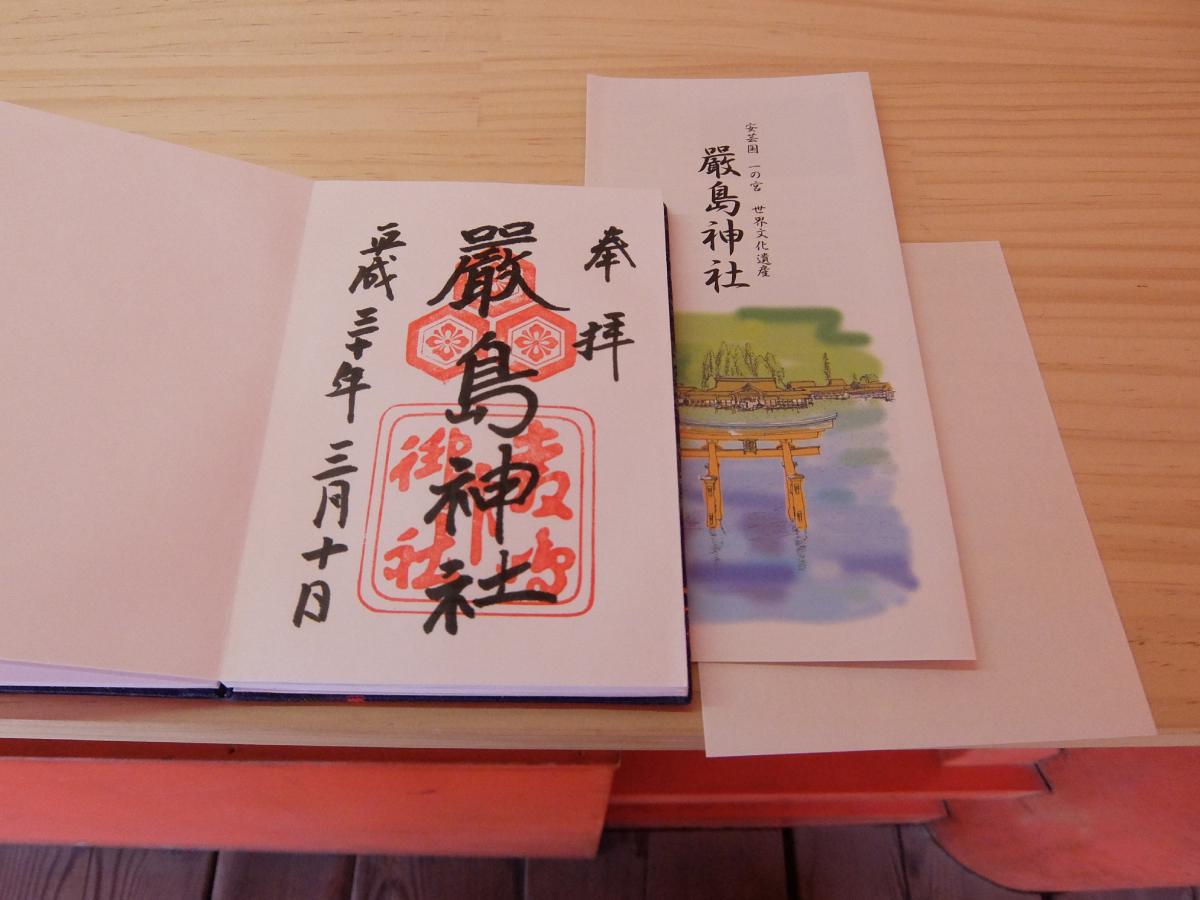 奉拝
嚴島神社
平成三十年三月十日
嚴島
御社
安芸国 一の宮 世界文化遺産
嚴島神社